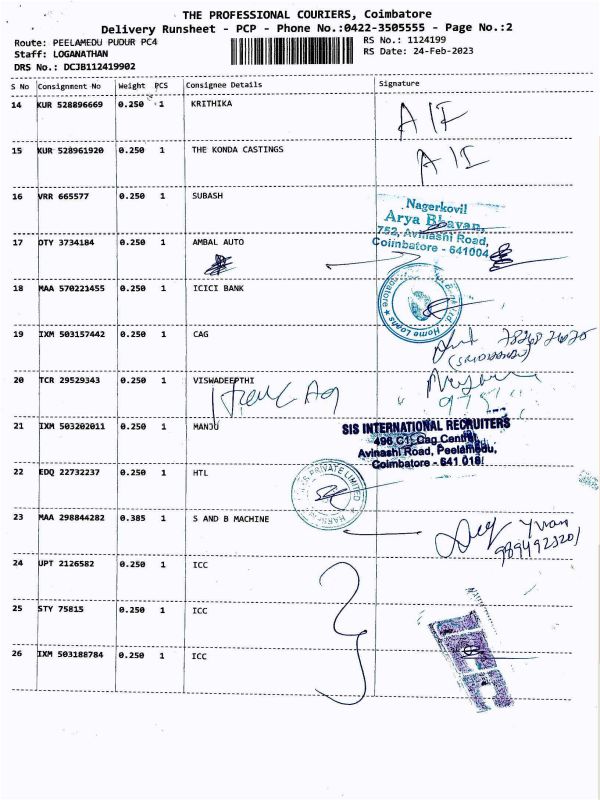 THE PROFESSIONAL COURIERS, Coimbatore
Delivery Runsheet - PCP - Phone No.:0422-3505555 - Page No.:2
Route: PEELAMEDU PUDUR PC4 RS No.: 1124199
Staff: LOGANATHAN RS Date: 24-Feb-2023
DRS No.: DCJB112419902
S No Consignment No Weight PCS Consignee Details Signature
14 KUR 528896669 0.250 1 KRITHIKA
15 KUR 528961920 0.250 1 THE KONDA CASTINGS
16 VRR 665577 0.250 1 SUBASH
Nagerkovil
Arya Bhavan,
752, Avinashi Road,
Coimbatore - 641004
17 DTY 3734184 0.250 1 AMBAL AUTO
18 MAA 570221455 0.250 1 ICICI BANK
Home Loans
19 IXM 503157442 0.250 1 CAG
20 TCR 29529343 0.250 1 VISWADEEPTHI
21 IXM 503202011 0.250 1 MANJU
SIS INTERNATIONAL RECRUITERS
496 C1, Cag Central
Avinashi Road, Peelamedu,
Coimbatore - 641 018
22 EDQ 22732237 0.250 1 HTL
PRIVATE LIMITED
23 MAA 298844282 0.385 1 S AND B MACHINE
24 UPT 2126582 0.250 1 ICC
25 STY 75815 0.250 1 ICC
26 IXM 503188784 0.250 1 ICC